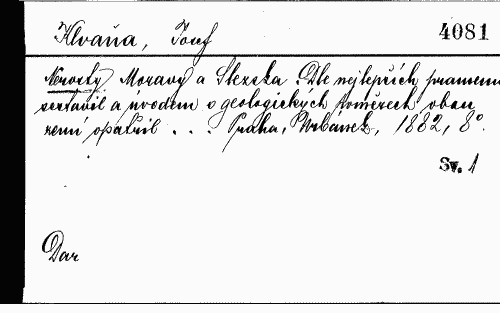 Klvaňa, Josef 4081
Nerosty Moravy a Slezska. Dle nejlepších pramenů
sestavil a úvodem o geologických poměrech obou
zemí opatřil . . . Praha, Urbánek, 1882, 8°.
Sv. 1
Dar